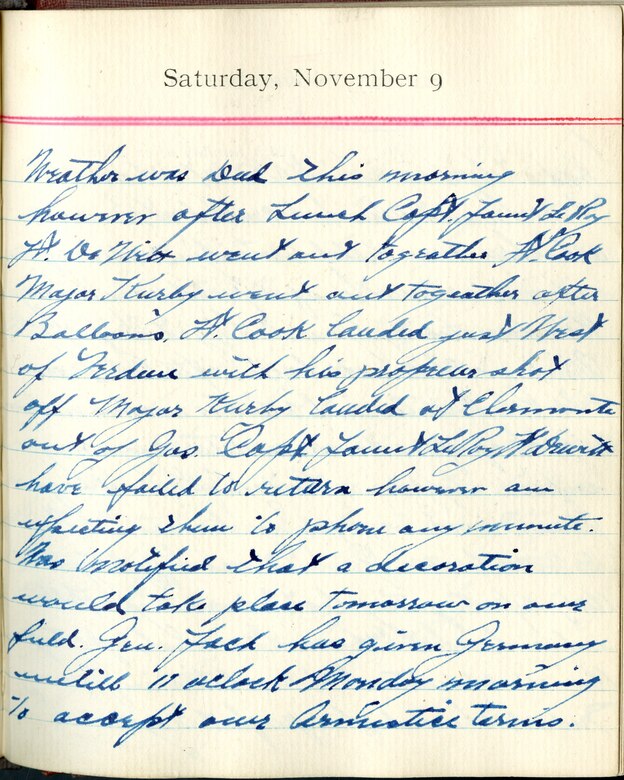 Saturday, November 9
Weather was Dud this morning
however after Lunch Capt. Fauntleroy
Lt. De Witt went out togeather Lt. Cook
Major Kirby went out togeather after
Balloons. Lt. Cook landed just West
of Verdun with his shot
off Major Kirby landed at Clermonte
out of Gas. Capt Fauntleroy Lt Dewitt
have failed to return however am
them to phone any minute.
Was notified that a decoration
would take place tomorrow on our
field. Gen. Foch has given Germany
untill 11 oclock Monday morning
to accept our Armistice terms.